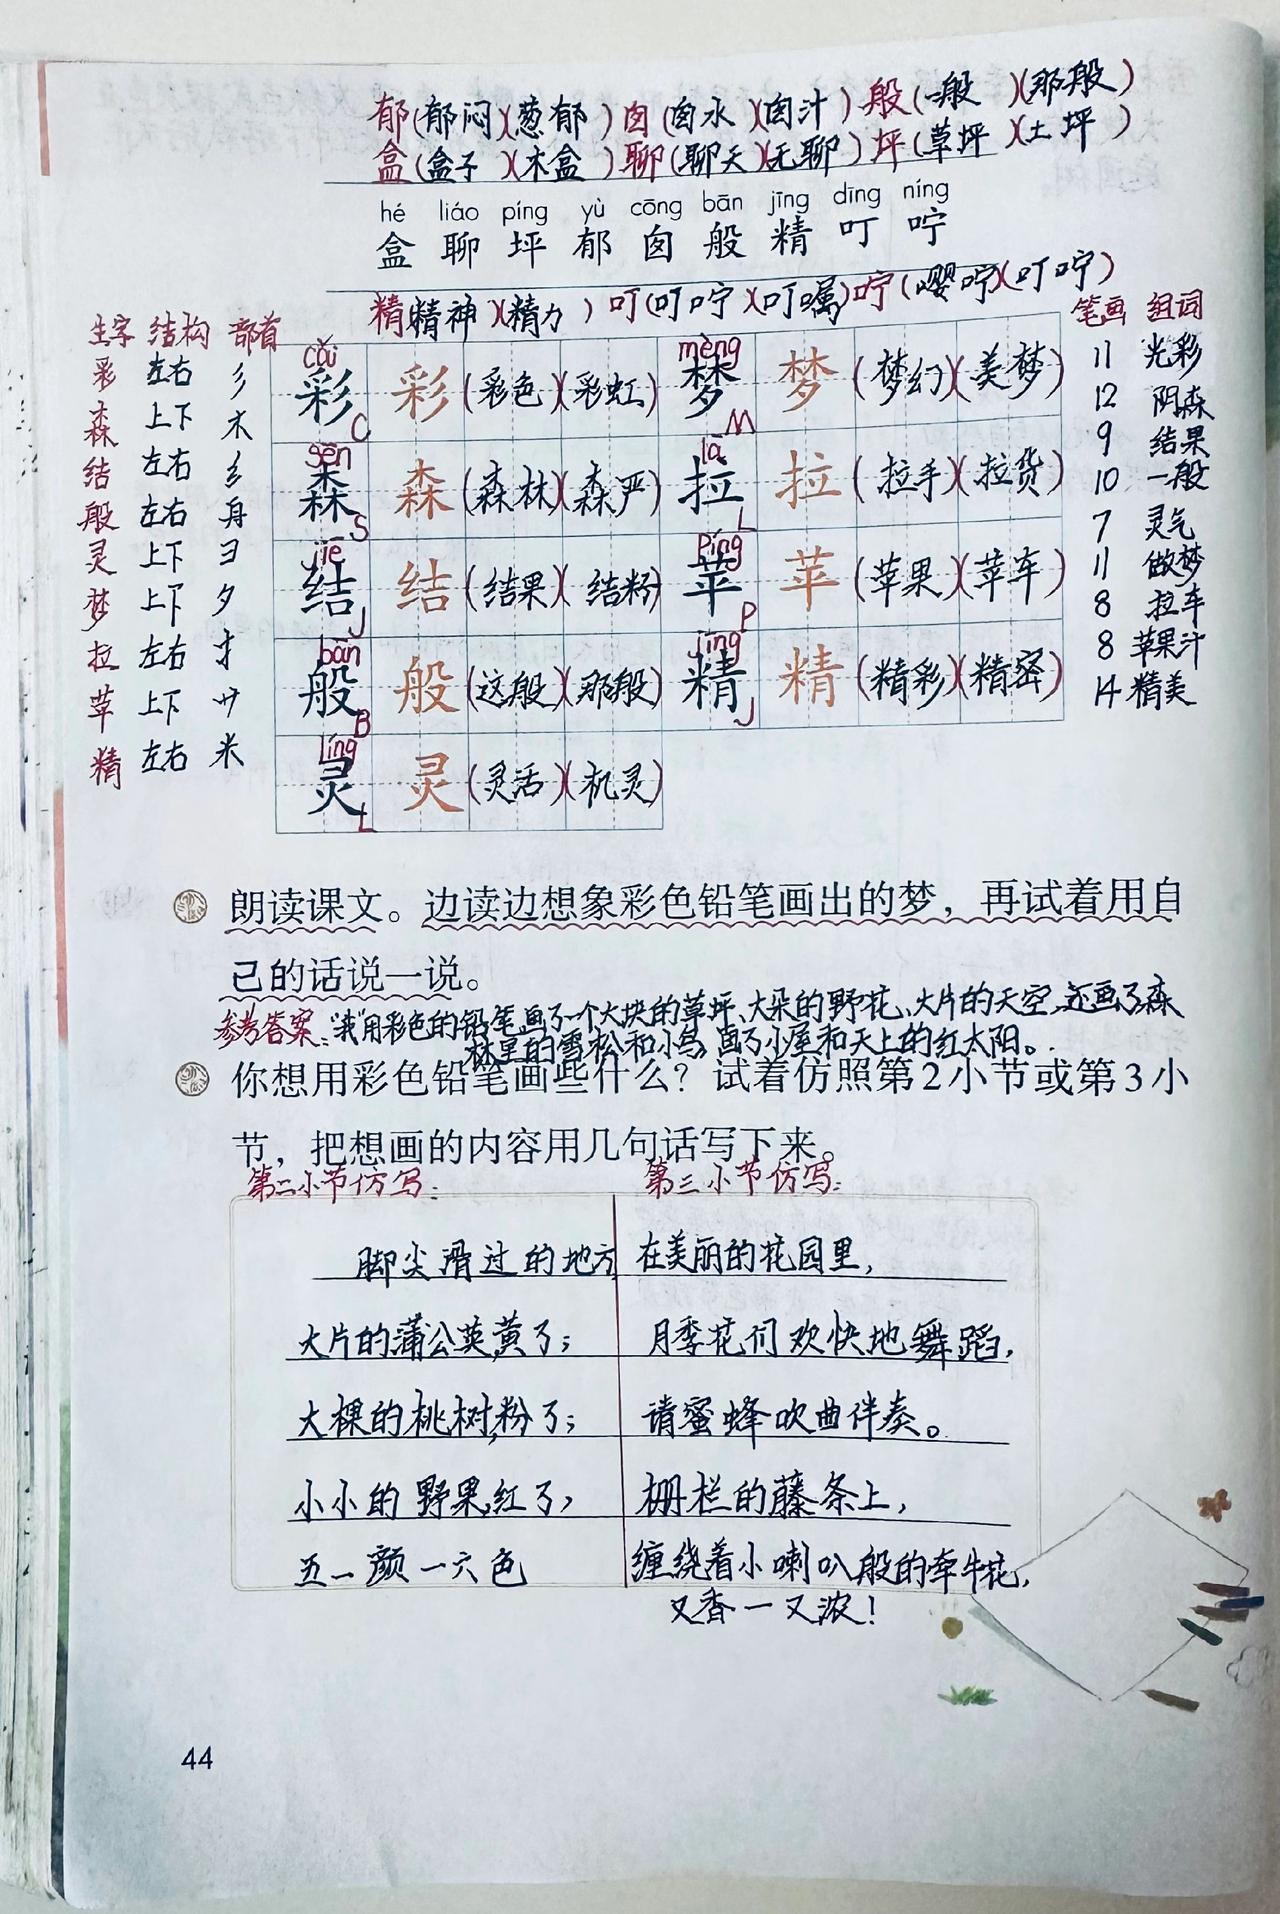 郁(郁闷)(葱郁)囱(囱水)(囱汁)般(一般)(那般)
盒(盒子)(木盒)聊(聊天)(无聊)坪(草坪)(土坪)
hé liáo píng yù cōng bān jīng dīng níng
盒 聊 坪 郁 囱 般 精 叮 咛
精(精神)(精力)叮(叮咛)(叮嘱)咛(嘤咛)(叮咛)
生字 结构 部首
彩 左右 彡
森 上下 木
结 左右 纟
般 左右 舟
灵 上下 彐
梦 上下 夕
拉 左右 扌
苹 上下 艹
精 左右 米
cǎi mèng
彩 C 彩(彩色)(彩虹)梦 M 梦(梦幻)(美梦)
sēn lā
森 S 森(森林)(森严)拉 L 拉(拉手)(拉货)
jié píng
结 J 结(结果)(结粉)苹 P 苹(苹果)(苹车)
bān jīng
般 B 般(这般)(那般)精 J 精(精彩)(精密)
líng
灵 L 灵(灵活)(机灵)
笔画 组词
11 光彩
12 阴森
9 结果
10 一般
7 灵气
11 做梦
8 拉车
8 苹果汁
14 精美
朗读课文。边读边想象彩色铅笔画出的梦，再试着用自
己的话说一说。
参考答案："我"用彩色的铅笔画了一个大块的草坪、大朵的野花、大片的天空,还画了森
林里的雪松和小鸟,画了小屋和天上的红太阳。
你想用彩色铅笔画些什么？试着仿照第2小节或第3小
节，把想画的内容用几句话写下来。
第二小节仿写:
脚尖滑过的地方,
大片的蒲公英,黄了;
大棵的桃树,粉了;
小小的野果,红了,
五一颜一六色
第三小节仿写:
在美丽的花园里,
月季花们欢快地舞蹈,
请蜜蜂吹曲伴奏。
栅栏的藤条上,
缠绕着小喇叭般的牵牛花,
又香一又浓!
44